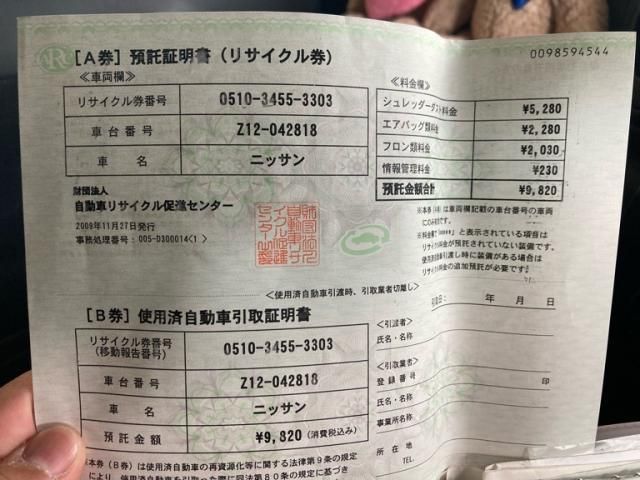 0098594544
[A券] 預託証明書 (リサイクル券)
≪車両欄≫
リサイクル券番号 0510-3455-3303
車台番号 Z12-042818
車名 ニッサン
財団法人
自動車リサイクル促進センター
2009年11月27日発行
事務処理番号:005-D300014<1>
≪料金欄≫
シュレッダーダスト料金 ¥5,280
エアバッグ類料金 ¥2,280
フロン類料金 ¥2,030
情報管理料金 ¥230
預託金額合計 ¥9,820
※本券(A券)は車両欄記載の車台番号の車両
にのみ有効です。
と表示されている項目は
リサイクル料金が預託されていない装備です。
使用済自動車引渡し時に装備がある場合は
リサイクル料金の追加預託が必要です。
<使用済自動車引渡時、引取業者切離し>
[B券] 使用済自動車引取証明書
リサイクル券番号
(移動報告番号) 0510-3455-3303
車台番号 Z12-042818
車名 ニッサン
預託金額 ¥9,820 (消費税込み)
本券(B券)は使用済自動車の再資源化等に関する法律第9条の規定
により、使用済自動車を引取った際に同法第80条の規定に基づき
引取日: 年 月 日
<引渡者>
氏名・名称
<引取業者>
登録番号 印
氏名・名称
事業所名称
所在地
TEL.